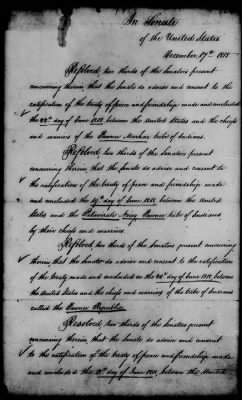 In Senate
of the United States
December 17th 1818
Resolved, two thirds of the Senators present
concurring therein, that the Senate do advise and consent to the
ratification of the treaty of peace and friendship made and concluded
the 22nd day of June 1818, between the United States and the chiefs
and warriors of the Pawnee Marhar tribe of Indians.
Resolved, two thirds of the Senators present
concurring therein, that the Senate do advise and consent to
the ratification of the treaty of peace and friendship made
and concluded the day of June 1818, between the United
States and the Noisy Pawnee tribe of Indians
by their chiefs and warriors.
Resolved, two thirds of the Senators present concurring
therein, that the Senate do advise and consent to the ratification
of the treaty made and concluded on the 20th day of June 1818, between
the United States and the chiefs and warriors of the tribe of Indians
called the Pawnee Republic.
Resolved, two thirds of the Senators present
concurring therein, that the Senate do advise and consent
to the ratification of the treaty of peace and friendship made
and concluded the day of June 1818, between the United